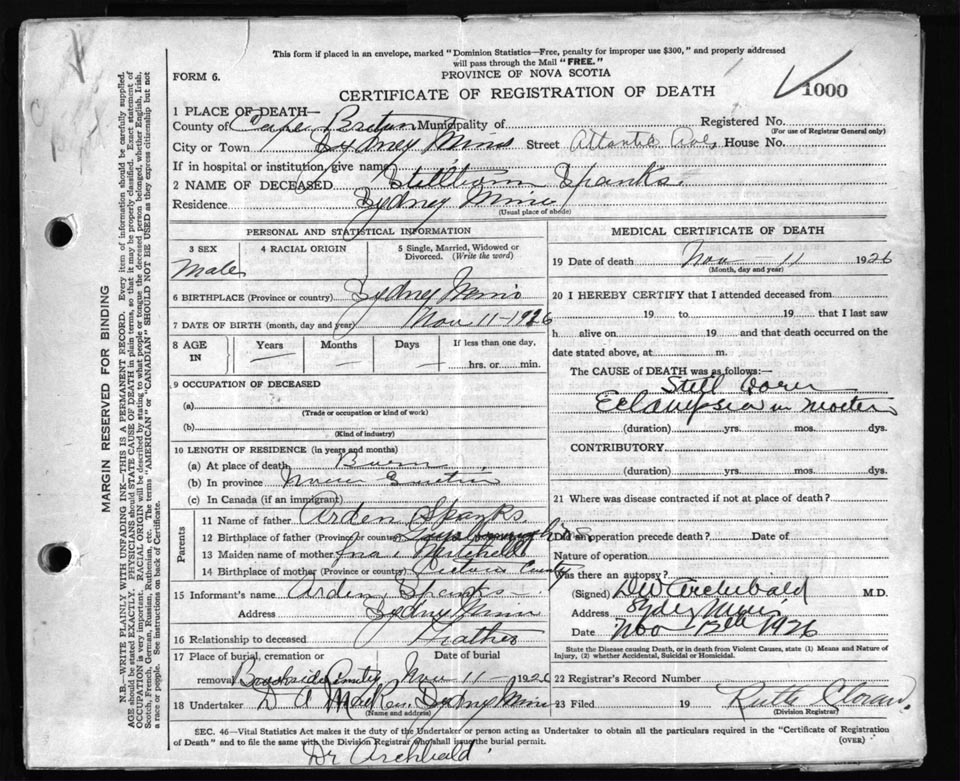 This form if placed in an envelope, marked "Dominion Statistics—Free, penalty for improper use $300," and properly addressed
will pass through the Mail "FREE."
FORM 6.
PROVINCE OF NOVA SCOTIA
CERTIFICATE OF REGISTRATION OF DEATH
1000
1 PLACE OF DEATH—
County of Cape Breton Municipality of Registered No.
(For use of Registrar General only)
City or Town Sydney Mines Street Atlantic House No.
If in hospital or institution, give name
2 NAME OF DECEASED Stillborn Spanks
Residence Sydney Mines
(Usual place of abode)
PERSONAL AND STATISTICAL INFORMATION
3 SEX 4 RACIAL ORIGIN 5 Single, Married, Widowed or Divorced. (Write the word)
Male
6 BIRTHPLACE (Province or country) Sydney Mines
7 DATE OF BIRTH (month, day and year) Nov 11-1926
8 AGE IN Years Months Days If less than one day.
— — — hrs. or min.
9 OCCUPATION OF DECEASED
(a)
(Trade or occupation or kind of work)
(b)
(Kind of industry)
10 LENGTH OF RESIDENCE (in years and months)
(a) At place of death Born
(b) In province Nova Scotia
(c) In Canada (if an immigrant)
Parents
11 Name of father Arden Spanks
12 Birthplace of father (Province or country)
13 Maiden name of mother Ina Mitchell
14 Birthplace of mother (Province or country) Pictou County
15 Informant's name Arden Spanks
Address Sydney Mines
16 Relationship to deceased Father
17 Place of burial, cremation or removal Date of burial
Brookside Nov 11-1926
18 Undertaker D A Sydney Mines
(Name and address)
MEDICAL CERTIFICATE OF DEATH
19 Date of death Nov — 11 1926
(Month, day and year)
20 I HEREBY CERTIFY that I attended deceased from
19 to 19 that I last saw
h alive on 19 and that death occurred on the
date stated above, at m.
The CAUSE of DEATH was as follows:—
Still Born
Eclampsia in Mother
(duration) yrs. mos. dys.
CONTRIBUTORY
(duration) yrs. mos. dys.
21 Where was disease contracted if not at place of death?
Did an operation precede death? Date of
Nature of operation
Was there an autopsy?
(Signed) Archibald M.D.
Address Syd Mines
Date Nov 12th 1926
State the Disease causing Death, or in death from Violent Causes, state (1) Means and Nature of
Injury, (2) whether Accidental, Suicidal or Homicidal.
22 Registrar's Record Number
23 Filed 19 Ruth
(Division Registrar)
SEC. 46—Vital Statistics Act makes it the duty of the Undertaker or person acting as Undertaker to obtain all the particulars required in the "Certificate of Registration
of Death" and to file the same with the Division Registrar who shall issue the burial permit.
(OVER)
Dr Archibald
MARGIN RESERVED FOR BINDING
N.B.—WRITE PLAINLY WITH UNFADING INK—THIS IS A PERMANENT RECORD. Every item of information should be carefully supplied.
AGE should be stated EXACTLY. PHYSICIANS should STATE CAUSE OF DEATH in plain terms, so that it may be properly classified. Exact statement of
OCCUPATION is very important. RACIAL ORIGIN will be described by stating to what people or tongue the deceased person belonged, whether English, Irish,
Scotch, French, German, Russian, Ruthenian, etc. The terms "AMERICAN" or "CANADIAN" SHOULD NOT BE USED as they express citizenship but not
a race or people. See instructions on back of Certificate.